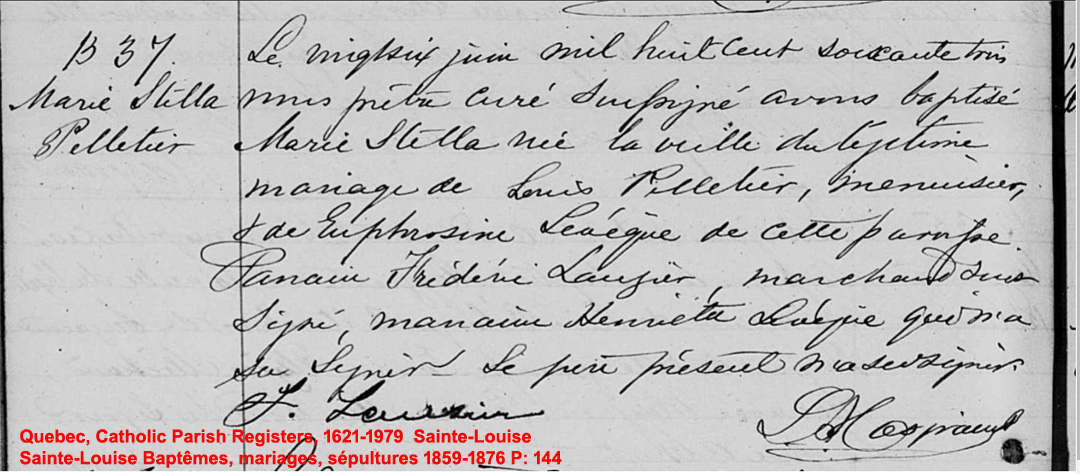 B 37.
Marie Stella
Pelletier
Le vingtsix juin mil huit cent soixante trois
nous prêtre curé soussigné avons baptisé
Marie Stella née la veille du légitime
mariage de Louis Pelletier, menuisier,
& de Euphrosine Levêque de cette paroisse.
Parain Frédéric Lauzier, marchand sous
signé, maraine Henriette Levêque qui n'a
su signer. Le père présent n'a su signer.
F. Lauzier
Quebec, Catholic Parish Registers, 1621-1979 Sainte-Louise
Sainte-Louise Baptêmes, mariages, sépultures 1859-1876 P: 144